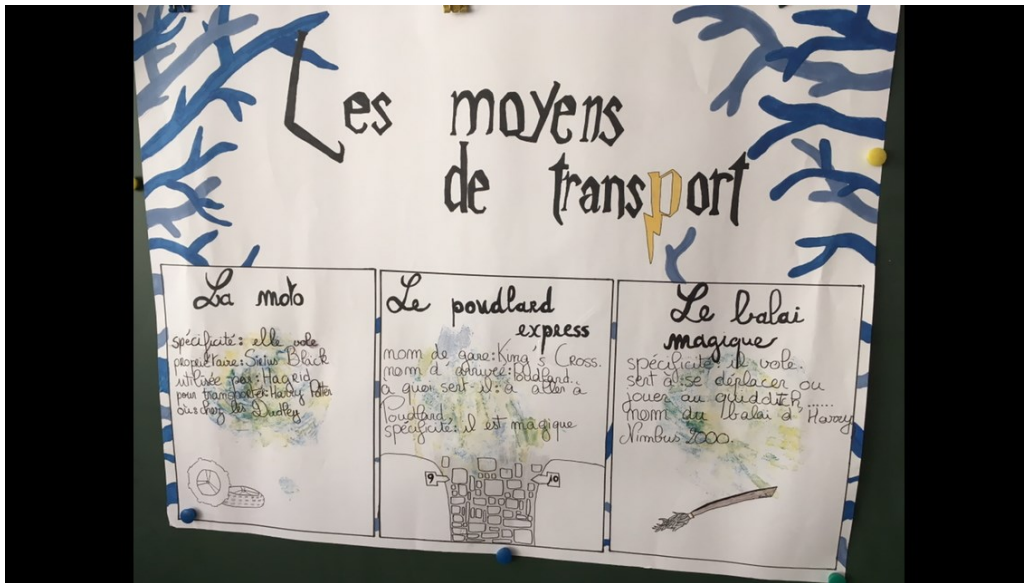 Les moyens
de transport
La moto
spécificité: elle vole
propriétaire: Sirius Black
utilisée par: Hagrid
pour transporter: Harry Potter
où: chez les Dudley
Le poudlard
express
nom de gare: King's Cross.
nom d'arrivée: Poudlard..
a quoi sert-il: à aller à
Poudlard.
spécificité: il est magique
9
10
Le balai
magique
spécificité: il vole.
sert à: se déplacer ou
jouer au quidditch......
nom du balai d'Harry
Nimbus 2000.